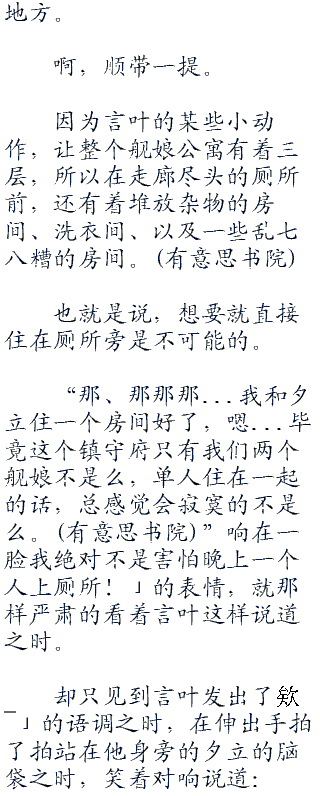 地方。
啊，顺带一提。
因为言叶的某些小动
作，让整个舰娘公寓有着三
层，所以在走廊尽头的厕所
前，还有着堆放杂物的房
间、洗衣间、以及一些乱七
八糟的房间。(有意思书院)
也就是说，想要就直接
住在厕所旁是不可能的。
“那、那那那...我和夕
立住一个房间好了，嗯...毕
竟这个镇守府只有我们两个
舰娘不是么，单人住在一起
的话，总感觉会寂寞的不是
么。(有意思书院)”响在一
脸我绝对不是害怕晚上一个
人上厕所！」的表情，就那
样严肃的看着言叶这样说道
之时。
却只见到言叶发出了欸
_」的语调之时，在伸出手拍
了拍站在他身旁的夕立的脑
袋之时，笑着对响说道：